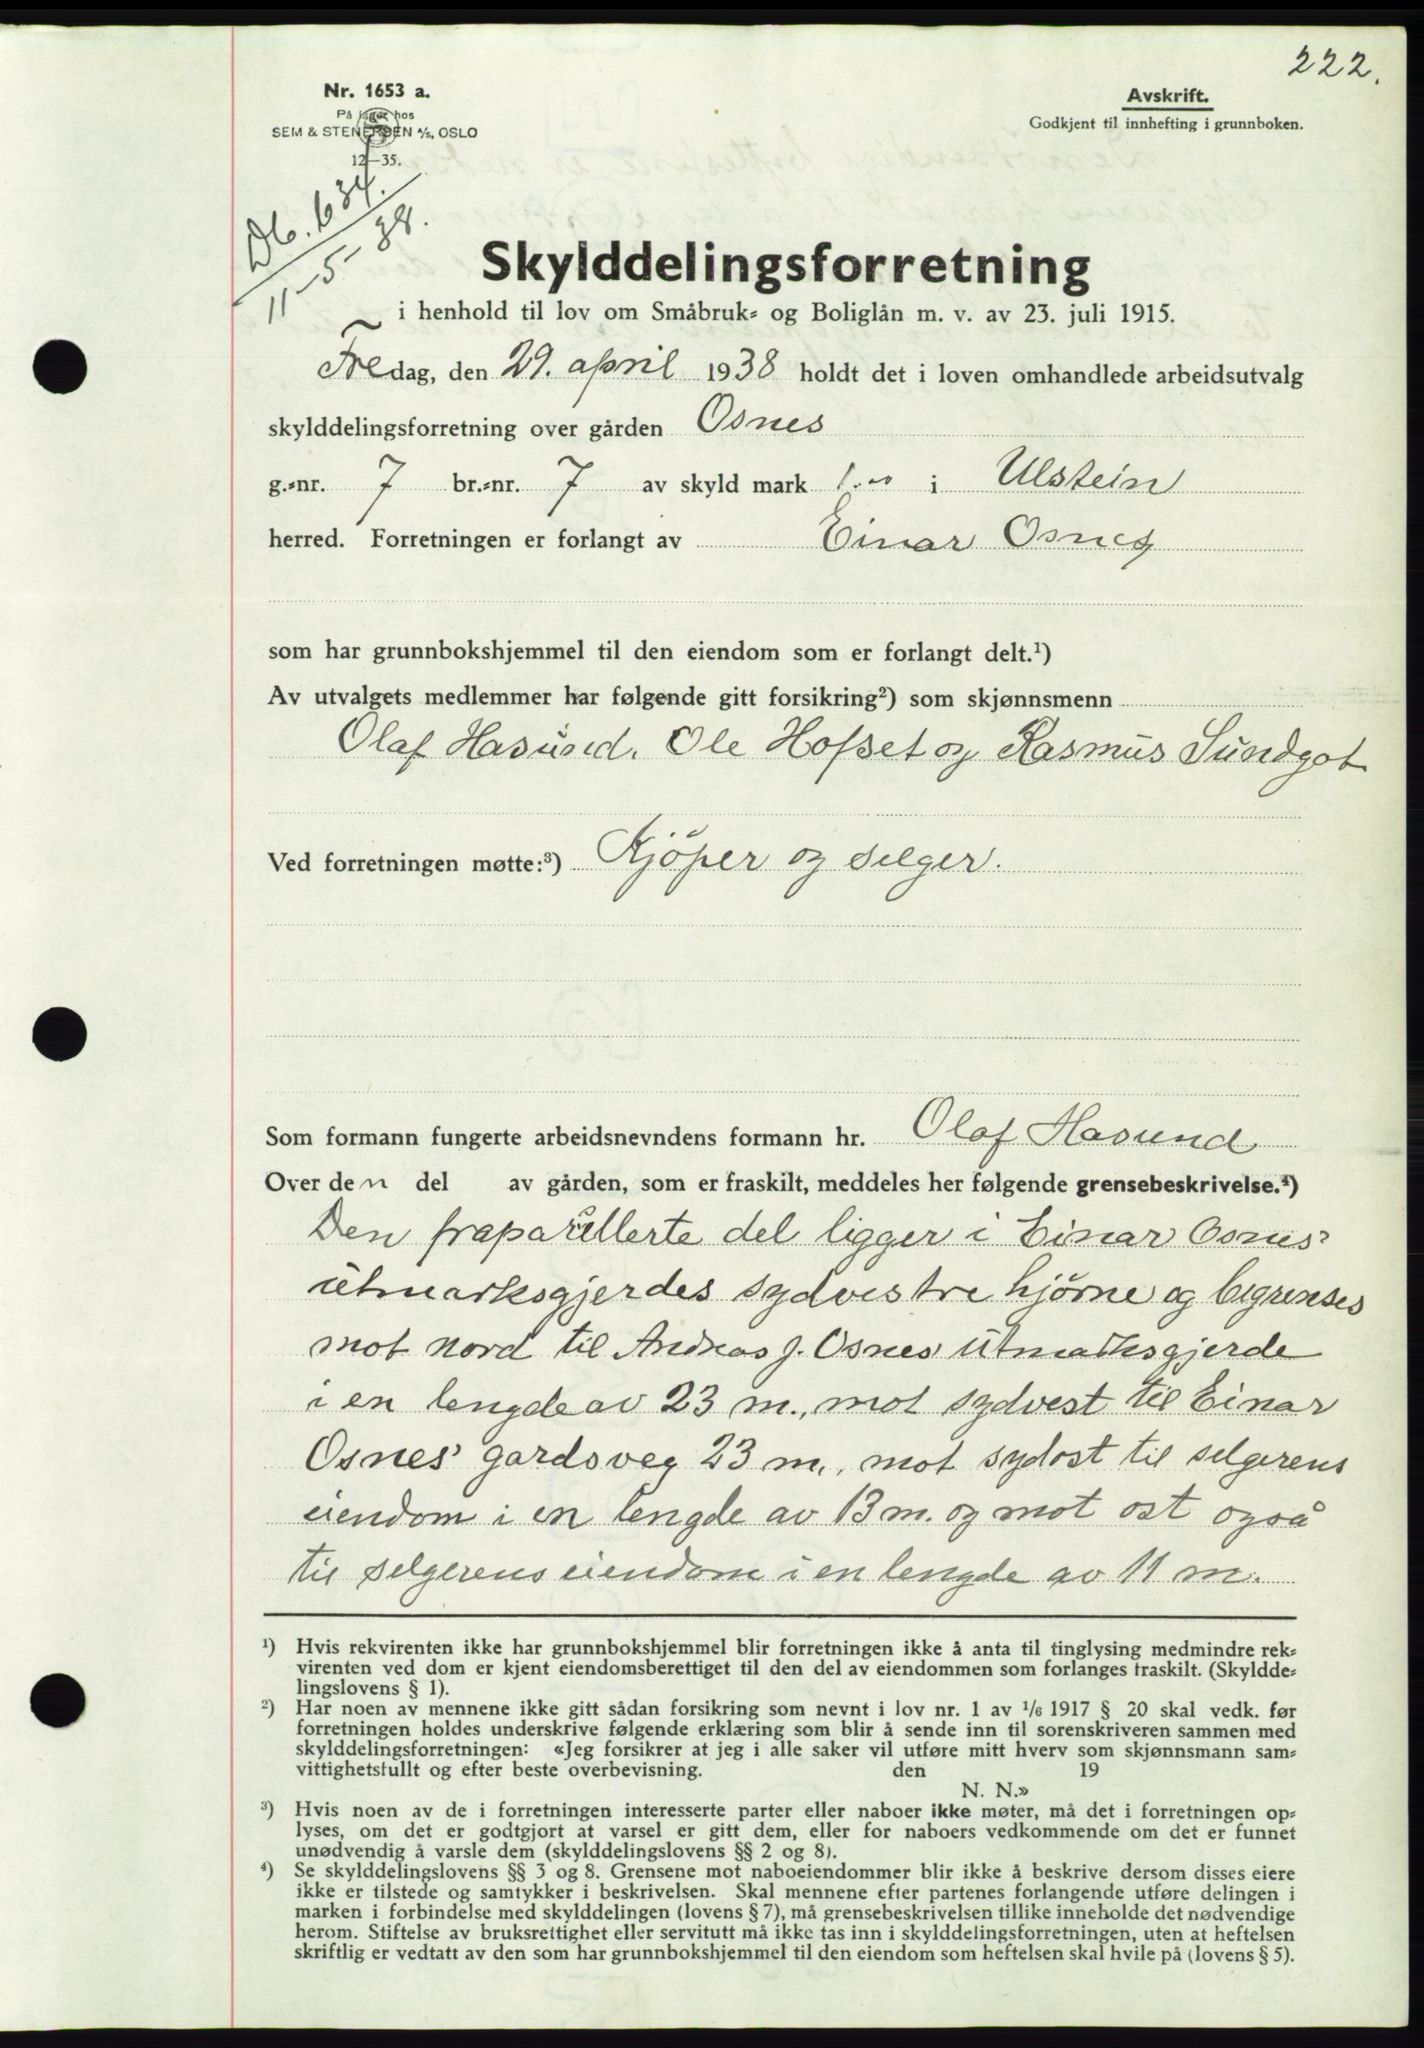 222.
Nr. 1653 a.
På lager hos
SEM & STENERSEN A/S, OSLO
12-35.
Avskrift.
Godkjent til innhefting i grunnboken.
Db. 634.
11-5-38.
Skylddelingsforretning
i henhold til lov om Småbruk- og Boliglån m. v. av 23. juli 1915.
Fredag, den 29. april 1938 holdt det i loven omhandlede arbeidsutvalg
skylddelingsforretning over gården Osnes
g.-nr. 7 br.-nr. 7 av skyld mark 1.00 i Ulstein
herred. Forretningen er forlangt av Einar Osnes
som har grunnbokshjemmel til den eiendom som er forlangt delt.¹)
Av utvalgets medlemmer har følgende gitt forsikring²) som skjønnsmenn
Olaf Hasund. Ole Hofset og Rasmus Sundgot
Ved forretningen møtte:³) Kjöper og selger.
Som formann fungerte arbeidsnevndens formann hr. Olaf Hasund
Over den del av gården, som er fraskilt, meddeles her følgende grensebeskrivelse.⁴)
Den fraparsellerte del ligger i Einar Osnes'
utmarksgjerdes sydvestre hjörne og begrenses
mot nord til Andreas J. Osnes utmarksgjerde
i en lengde av 23 m., mot sydvest til Einar
Osnes' gardsveg 23 m., mot sydost til selgerens
eiendom i en lengde av 13 m. og mot ost også
til selgerens eiendom i en lengde av 11 m.
¹) Hvis rekvirenten ikke har grunnbokshjemmel blir forretningen ikke å anta til tinglysing medmindre rek-
virenten ved dom er kjent eiendomsberettiget til den del av eiendommen som forlanges fraskilt. (Skyldde-
lingslovens § 1).
²) Har noen av mennene ikke gitt sådan forsikring som nevnt i lov nr. 1 av 1/6 1917 § 20 skal vedk. før
forretningen holdes underskrive følgende erklæring som blir å sende inn til sorenskriveren sammen med
skylddelingsforretningen: «Jeg forsikrer at jeg i alle saker vil utføre mitt hverv som skjønnsmann sam-
vittighetsfullt og efter beste overbevisning. den 19
N. N.»
³) Hvis noen av de i forretningen interesserte parter eller naboer ikke møter, må det i forretningen op-
lyses, om det er godtgjort at varsel er gitt dem, eller for naboers vedkommende om det er funnet
unødvendig å varsle dem (skylddelingslovens §§ 2 og 8).
⁴) Se skylddelingslovens §§ 3 og 8. Grensene mot naboeiendommer blir ikke å beskrive dersom disses eiere
ikke er tilstede og samtykker i beskrivelsen. Skal mennene efter partenes forlangende utføre delingen i
marken i forbindelse med skylddelingen (lovens § 7), må grensebeskrivelsen tillike inneholde det nødvendige
herom. Stiftelse av bruksrettighet eller servitutt må ikke tas inn i skylddelingsforretningen, uten at heftelsen
skriftlig er vedtatt av den som har grunnbokshjemmel til den eiendom som heftelsen skal hvile på (lovens § 5).